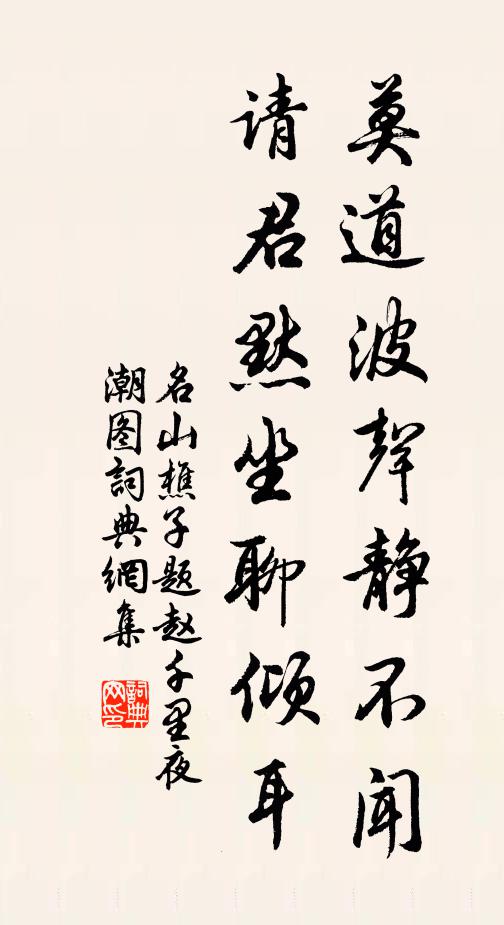 莫道波聲静不闻
请君默坐聊倾耳
名山樵子题赵千里夜
潮图詞典網集
詞典网印